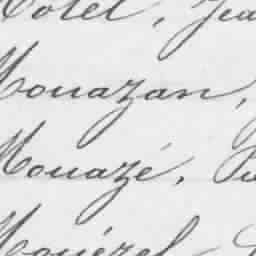 Motel, Jea
Mouazan,
Mouazé,
Mouézel